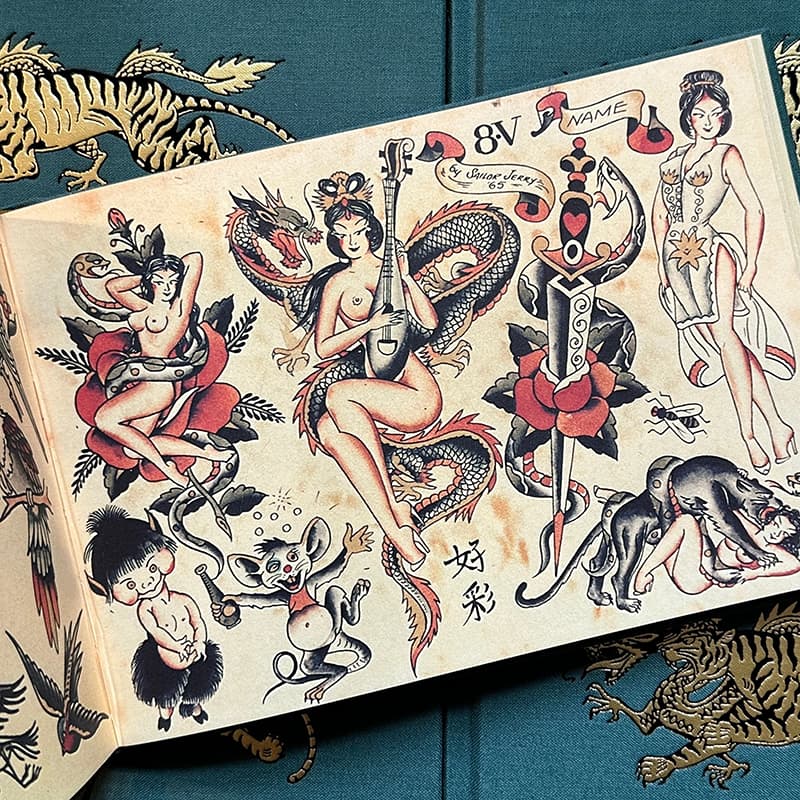 8·V
NAME
by SAILOR JERRY
'65
好
彩